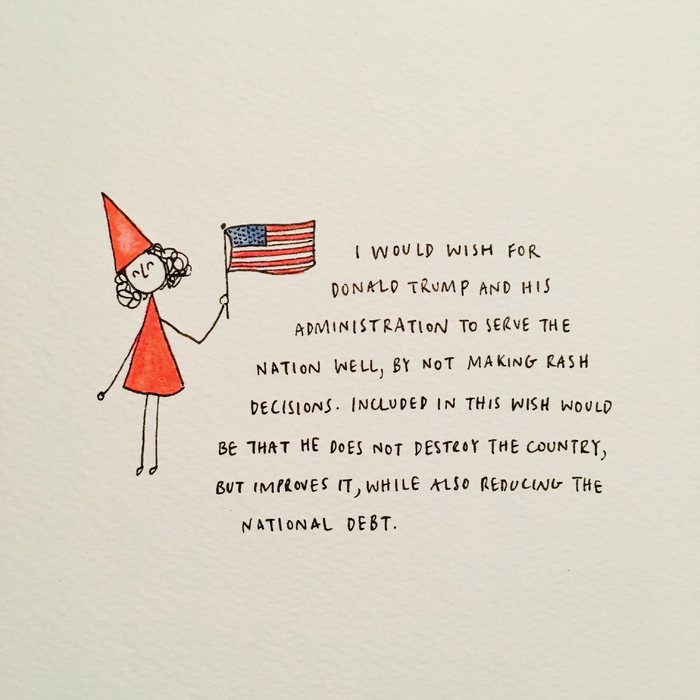 I WOULD WISH FOR
DONALD TRUMP AND HIS
ADMINISTRATION TO SERVE THE
NATION WELL, BY NOT MAKING RASH
DECISIONS. INCLUDED IN THIS WISH WOULD
BE THAT HE DOES NOT DESTROY THE COUNTRY,
BUT IMPROVES IT, WHILE ALSO REDUCING THE
NATIONAL DEBT.